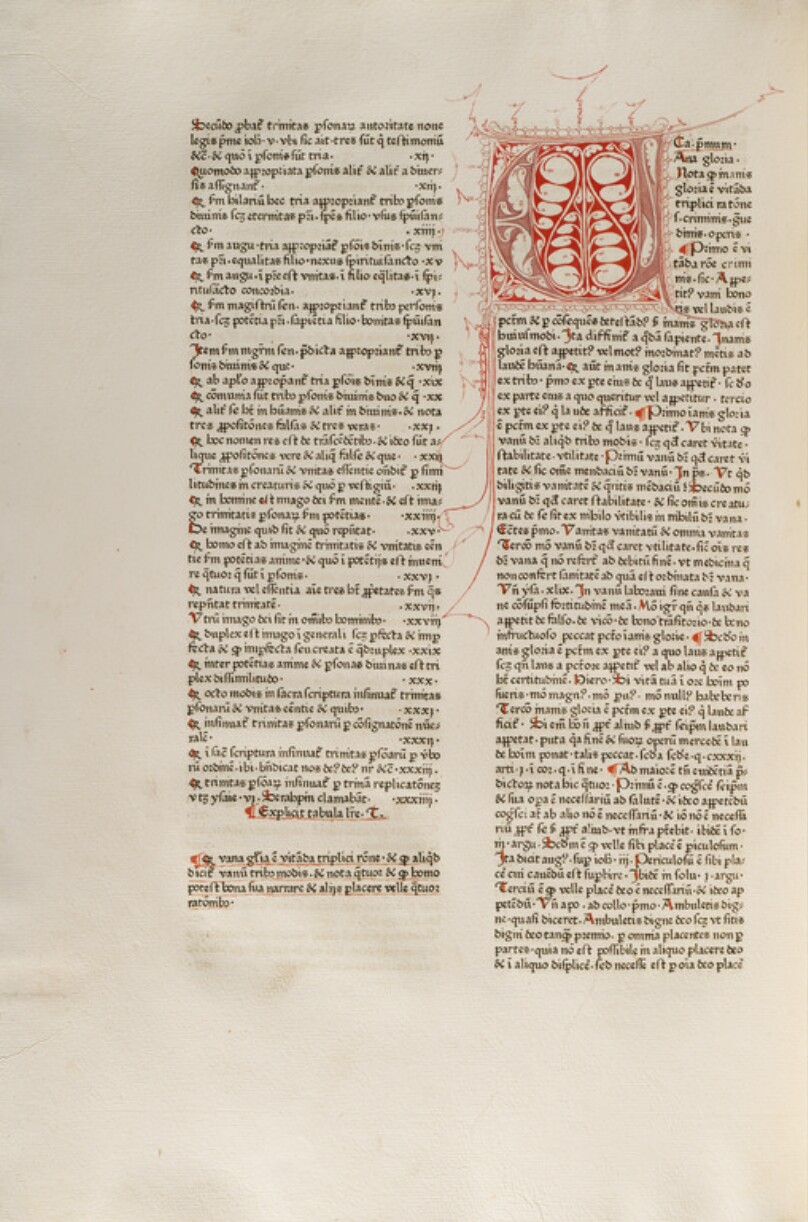 Secūdo ꝓbat᷑ trinitas ꝑsonaꝝ autoritate noue
legis pͥme ioh̄· v· vbi sic ait· tres sūt q̇ testimoniū
&c̄· & quō i ꝑsonis sūt tria· ·xij·
Quomodo aꝓpropriata ꝑsonis alit᷑ & alit᷑ a diuer-
sis assignant᷑· ·xiij·
Ꝙ ẜm hilariū hec tria aꝓpriant᷑ tribꝰ ꝑsonis
diuinis scꝫ eternitas pr̄i· spēs filio· vsus sp̄uisan-
cto· ·xiiij·
Ꝙ ẜm augu· tria aꝓpriāt᷑ ꝑsōis diīnis· scꝫ vni
tas pr̄i· equalitas filio· nexus spiritusancto ·xv
Ꝙ ẜm augu· ī pr̄e est vnitas· ī filio eq̄litas· ī spi-
ritusācto concordia· ·xvj·
Ꝙ ẜm magistrū sen· aꝓpriant᷑ tribꝰ personis
tria· scꝫ potētia pr̄i· sapiētia filio· bonitas sp̄uisan
cto· ·xvij·
Item ẜm mgr̄m sen· p̄dicta aꝓpriant᷑ tribꝰ ꝑ
sonis diuinis & que· ·xviij
Ꝙ ab apl̄o aꝓpriant᷑ tria ꝑsōis diīnis & q̄ ·xix
Ꝙ cōmunia sūt tribꝰ ꝑsonis diuinis duo & q̄ ·xx
Ꝙ alit᷑ se hꝫ in hūanis & alit᷑ in diuinis· & nota
tres ꝓpositōnes falsas & tres veras· ·xxj·
Ꝙ hoc nomen res est de trāscēdētibꝰ· & ideo sūt a-
lique ꝓpositōnes vere & aliq̄ false & que· ·xxij
Trinitas ꝑsonarū & vnitas essentie ondit᷑ ꝑ simi
litudines in creaturis & quō ꝑ vestigiū· ·xxiij
Ꝙ in homine est imago dei ẜm mentē· & est ima-
go trinitatis ꝑsonaꝝ ẜm potētias· ·xxiiij·
De imagine quid sit & quō rep̄ntat· ·xxv·
Ꝙ homo est ad imaginē trinitatis & vnitatis eēn
tie ẜm potētias anime· & quō ī potētijs est inueni
re q̄tuor· q̄ sūt ī ꝑsonis· ·xxvj·
Ꝙ natura vel essentia aīe tres hꝫ ꝓpetates ẜm q̄s
rep̄ntat trinitatē· ·xxvij·
Utrū imago dei sit in omībꝰ hominibꝰ· ·xxviij
Ꝙ duplex est imago ī generali scꝫ ꝑfecta & imꝑ
fecta & ꝙ imꝑfecta seu creata ē q̄druplex ·xxix
Ꝙ inter potētias anime & ꝑsonas diuinas est tri
plex dissimilitudo· ·xxx·
Ꝙ octo modis in sacra scriptura insinuat᷑ trinitas
ꝑsonarū & vnitas eēntie & quibꝰ· ·xxxj·
Ꝙ insinuat᷑ trinitas ꝑsonarū ꝑ cōsignatōnē nūe-
ralē· ·xxxij·
Ꝙ ī sac̄ scriptura insinuat᷑ trinitas ꝑsōarū ꝑ v̄bo
rū ordinē· ibi· bn̄dicat nos deꝰ deꝰ nr̄ &c̄· xxxiij·
Ꝙ trinitas ꝑsōaꝝ insinuat᷑ ꝑ trinā replicatōneꝫ
vtꝫ ysaie· vj· Seraphin clamabāt· ·xxxiiij·
¶Explicit tabula lr̄e· T·
¶Ꝙ vana gl̄ia ē vitāda triplici rōne· & ꝙ aliq̇d
dicit᷑ vanū tribꝰ modis· & nota q̄tuor & ꝙ homo
potest bona sua narrare & alijs placere velle q̄tuor
ratōnibꝰ·
Ca· p̄mum·
Ana gloria·
Nota ꝙ inanis
gloria ē vitāda
triplici ratōne
s· criminis· gͣue
dinis· operis·
¶Primo ē vi
tāda rōe crimi
nis· sic· Appe-
titꝰ vani bono
ris vel laudis ē
pctm̄ & ꝑ cōsequēs detestādꝰ ẜ inanis gloria est
huiusmodi· Ita diffinit᷑ a q̇dā sapiente· Inanis
gloria est appetitꝰ vel motꝰ inordinatꝰ mētis ad
laudē hūana· Ꝙ aūt inanis gloria sit pctm̄ patet
ex tribꝰ· pͥmo ex ꝑte eius de q̊ laus appetit᷑· sc̄do
ex parte eius a quo queritur vel appetitur· tercio
ex ꝑte eiꝰ q̇ laude afficit᷑· ¶Primo īanis gloria
ē pctm̄ ex ꝑte eiꝰ de q̊ laus appetit᷑· Ubi nota ꝙ
vanū dr̄ aliq̇d tribꝰ modis· scꝫ qd̄ caret v̄itate·
stabilitate· vtilitate· Primū vanū dr̄ qd̄ caret v̄i
tate & sic om̄e mendaciū dr̄ vanū· In ps̄· Ut q̇d
diligitis vanitatē & q̄ritis mēdaciū? Secūdo mō
vanū dr̄ qd̄ caret stabilitate· & sic om̄is creatu-
ra cū de se sit ex nihilo v̄tibilis in nihilū dr̄ vana·
Ecc̄tes pͥmo· Vanitas vanitatū & omnia vanitas
Tercō mō vanū dr̄ qd̄ caret vtilitate· sic̄ oīs res
dr̄ vana q̄ nō refert᷑ ad debitū finē· vt medicina q̄
non confert sanitatē ad quā est ordinata dr̄ vana·
Un̄ ysa· xlix· In vanū laboraui sine causa & va
ne cōsūpsi fortitudinē meā· Mō igr̄ qn̄ q̇s laudari
appetit de falso· de vicō· de bono trāsitorio· de bono
infructuoso peccat pctō īanis glorie· ¶Sc̄do in
anis gloria ē pctm̄ ex ꝑte eiꝰ a quo laus appetit᷑
scꝫ qn̄ laus a pctōre appetit᷑ vel ab alio q̇ de eo nō
hꝫ certitudinē· Hiero· Si vitā tuā ī ore hoīm po
sueris· mō magnꝰ· mō puꝰ· mō nullꝰ habeberis
Tercō inanis gloria ē pctm̄ ex ꝑte eiꝰ q̇ laude af
ficit᷑· Si em̄ hō nō ꝓpt̄ aliud ẜ ꝓpt̄ seip̄m laudari
appetat· puta q̄si finē & suoꝝ operū mercedē ī lau
de hoīm ponat· talis peccat· sc̄da sc̄de· q· cxxxij·
arti· j· ī cor· q· ī fine· ¶Ad maiorē tn̄ euidētiā p̄-
dictoꝝ nota hic q̄tuor· Primū ē· ꝙ cogsce̅ seip̄m
& sua oꝑa ē necessariū ad salutē· & ideo appetēdū
cogsci aūt ab alio nō ē necessariū· & iō nō ē necessa
riū ꝓpt̄ se ẜ ꝓpt̄ aliud· vt infra ptēbit· ibidē ī so·
iij· argu· Sc̄dm ē ꝙ velle sibi placē ē piculosum·
Ita dicit augꝰ· suꝑ ioh̄· iij· Periculosū ē sibi pla-
cē cui cauēdū est suꝑbire· Ibidē in solu· j· argu·
Terciū ē ꝙ velle placē deo ē necessariū· & ideo ap
petēdū· Un̄ apo· ad collo· pͥmo· Ambuletis dig-
ne· quasi diceret· Ambuletis digne deo scꝫ vt sitis
digni deo tanq̄ premio· ꝑ omnia placentes non ꝑ
partes· quia nō est possibile in aliquo placere deo
& ī aliquo displicē· sed necesse est ꝑ oīa deo placē